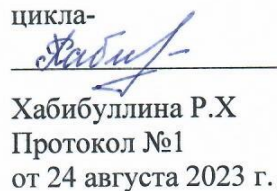 цикла-
Хабибуллина Р.Х
Протокол №1
от 24 августа 2023 г.